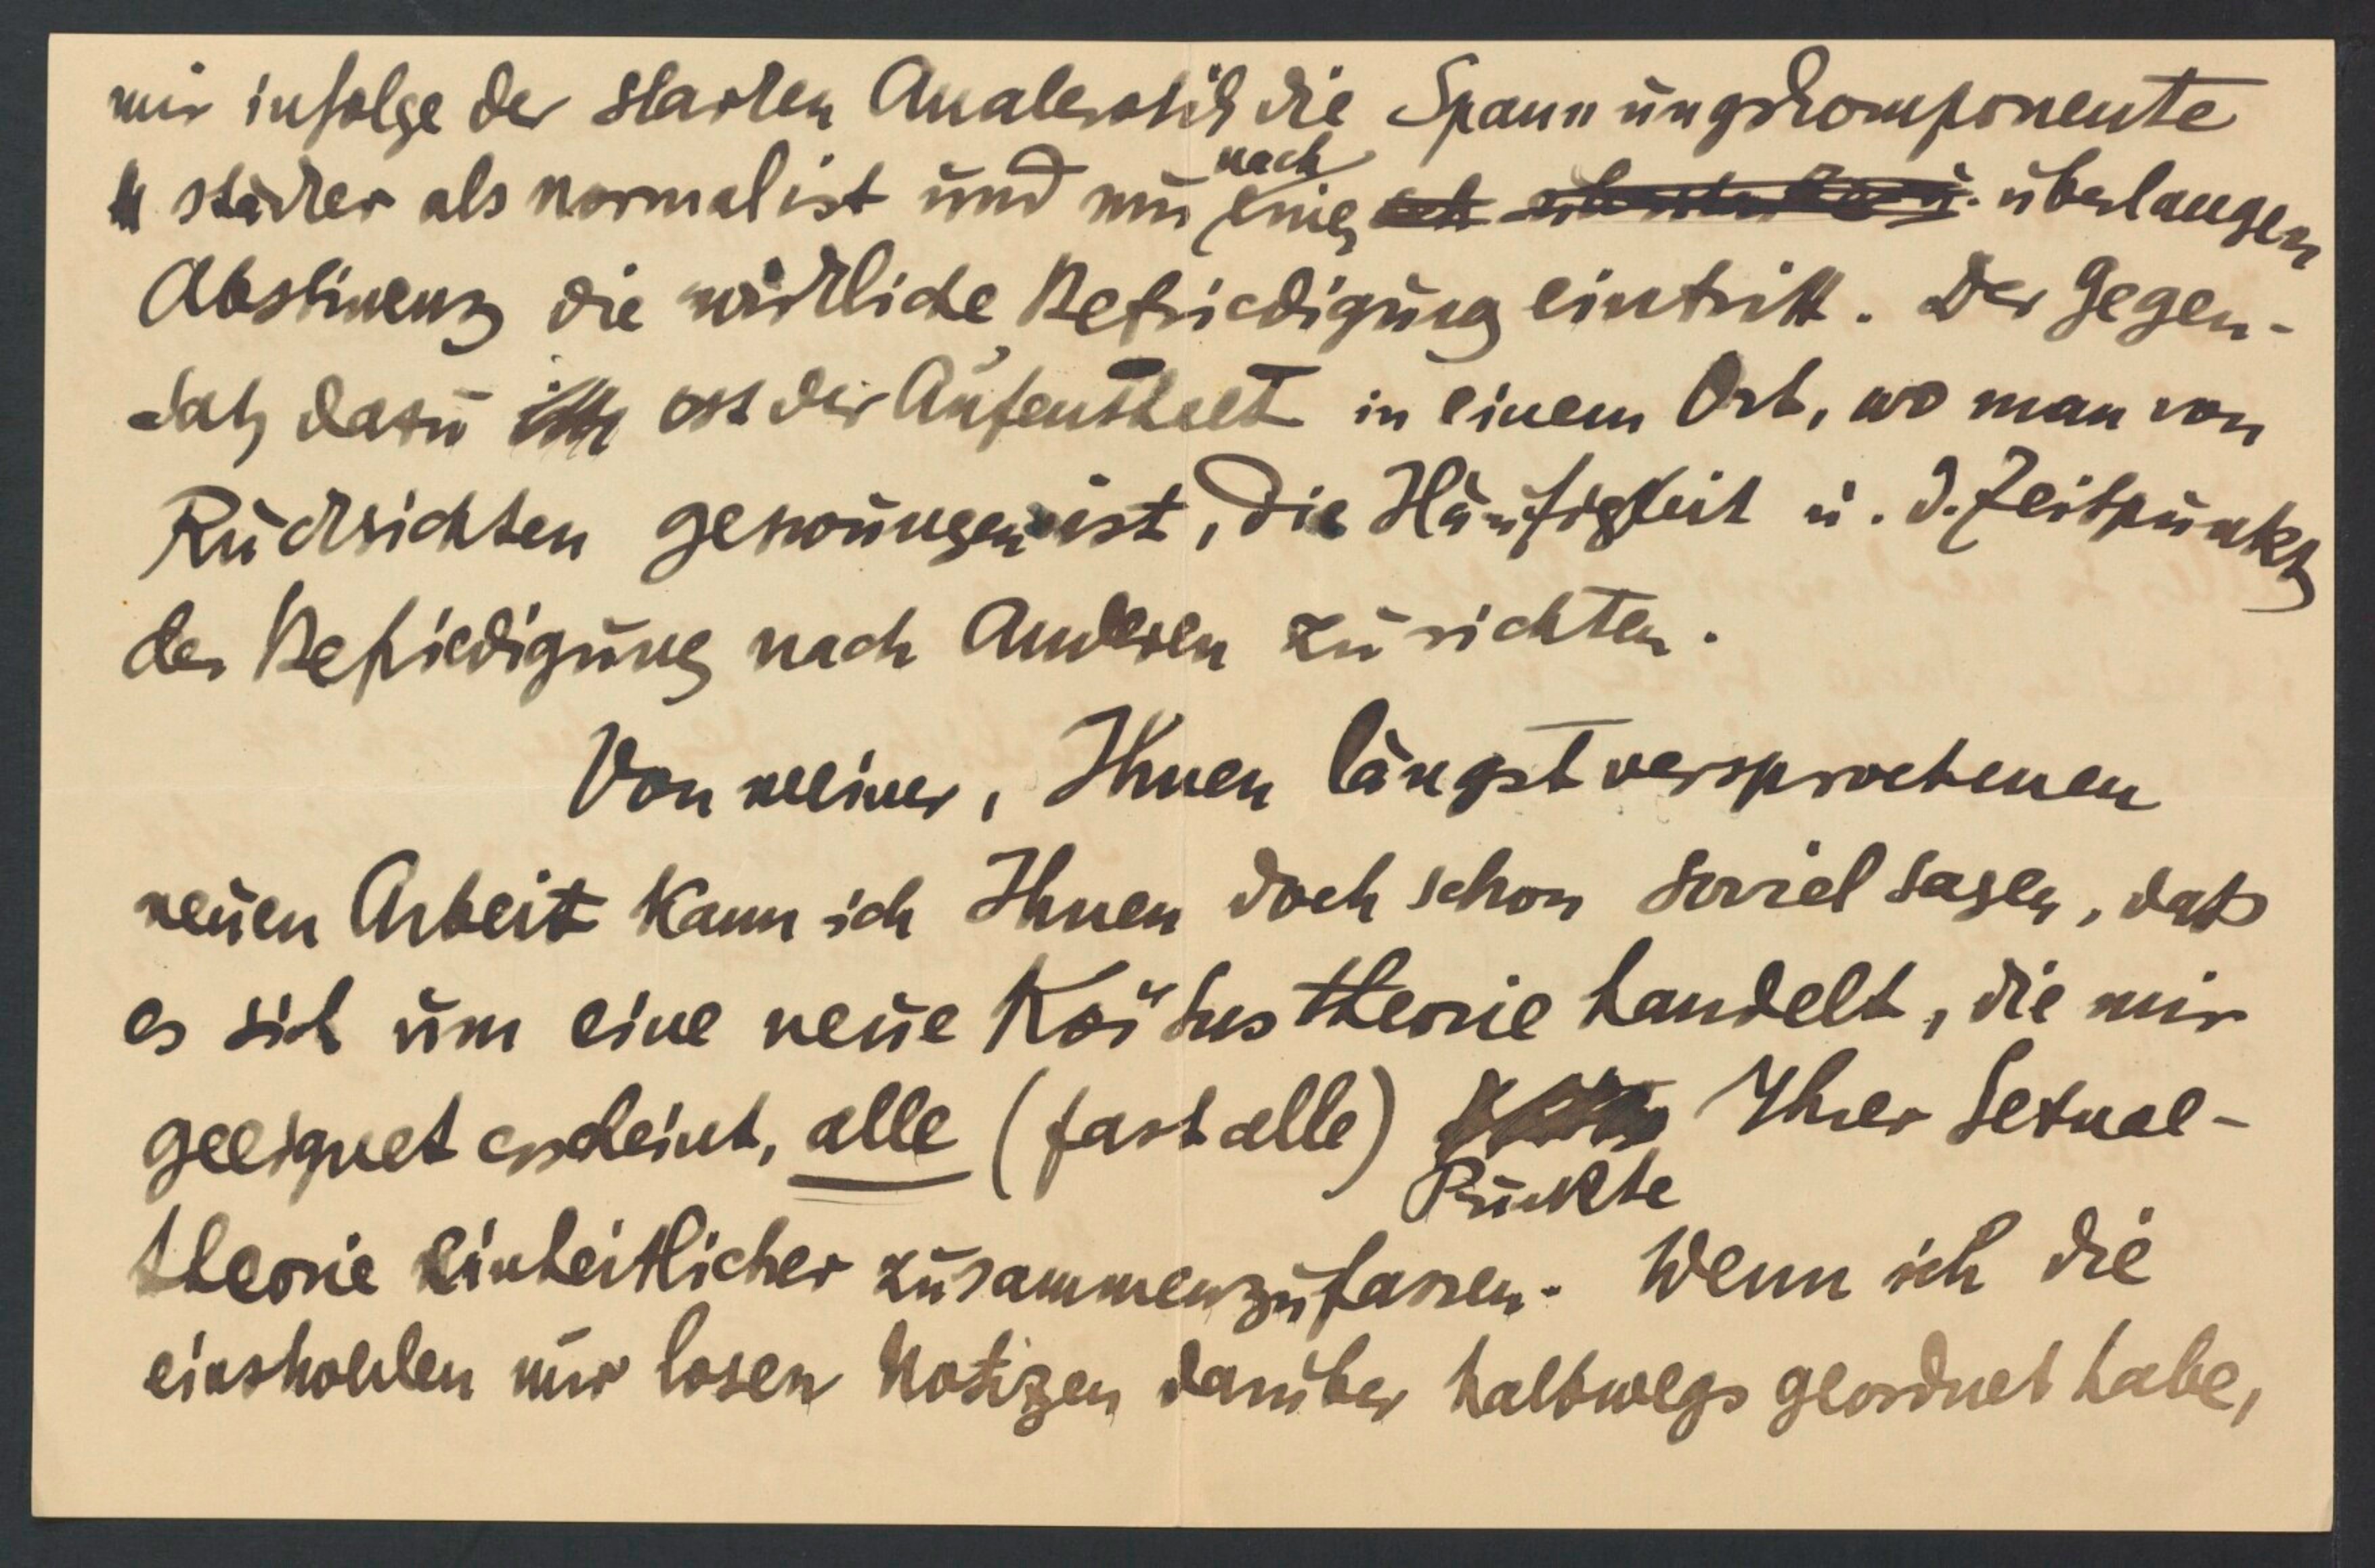 mir infolge der starken Analerotik die Spannungskomponente
stärker als normal ist und nun nach einer überlangen
Abstinenz die wirkliche Befriedigung eintritt. Der Gegen-
satz dazu ist der Aufenthalt in einem Ort, wo man von
Rücksichten gezwungen ist, die Häufigkeit u. d. Zeitpunkt
der Befriedigung nach Anderen zu richten.
Von meiner, Ihnen längst versprochenen
neuen Arbeit kann ich Ihnen doch schon soviel sagen, daß
es sich um eine neue Koitustheorie handelt, die mir
geeignet erscheint, alle (fast alle) Punkte Ihrer Sexual-
theorie einheitlicher zusammenzufassen. Wenn ich die
einstweilen nur losen Notizen darüber halbwegs geordnet habe,